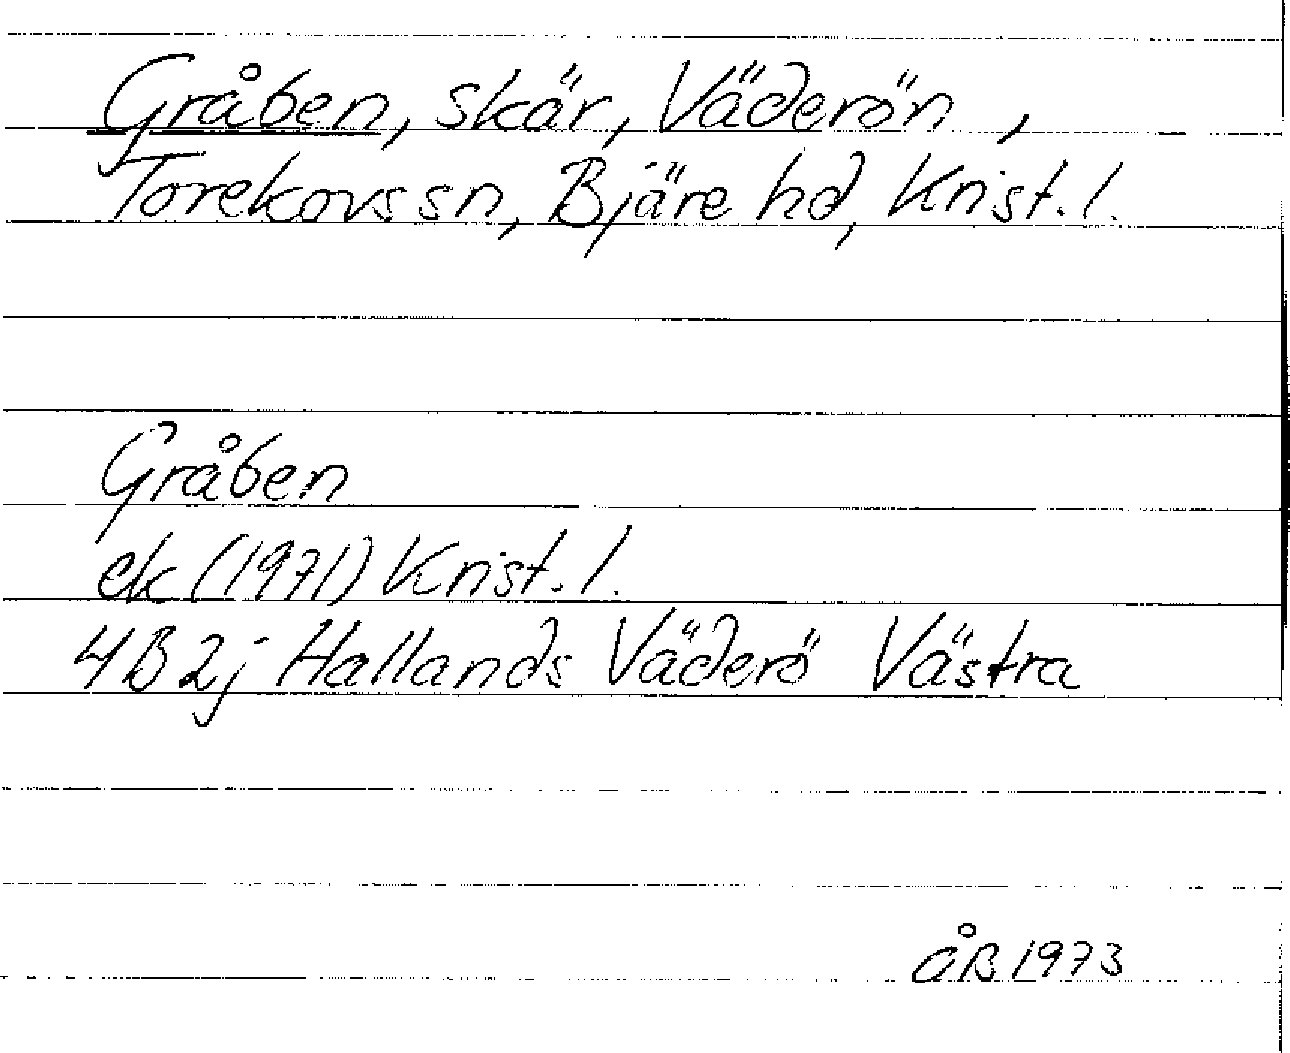 Gråben, skär, Väderön,
Torekovs sn, Bjäre hd, Krist. l.
Gråben
ek (1971) Krist. l.
4B2j Hallands Väderö Västra
ÅB 1973